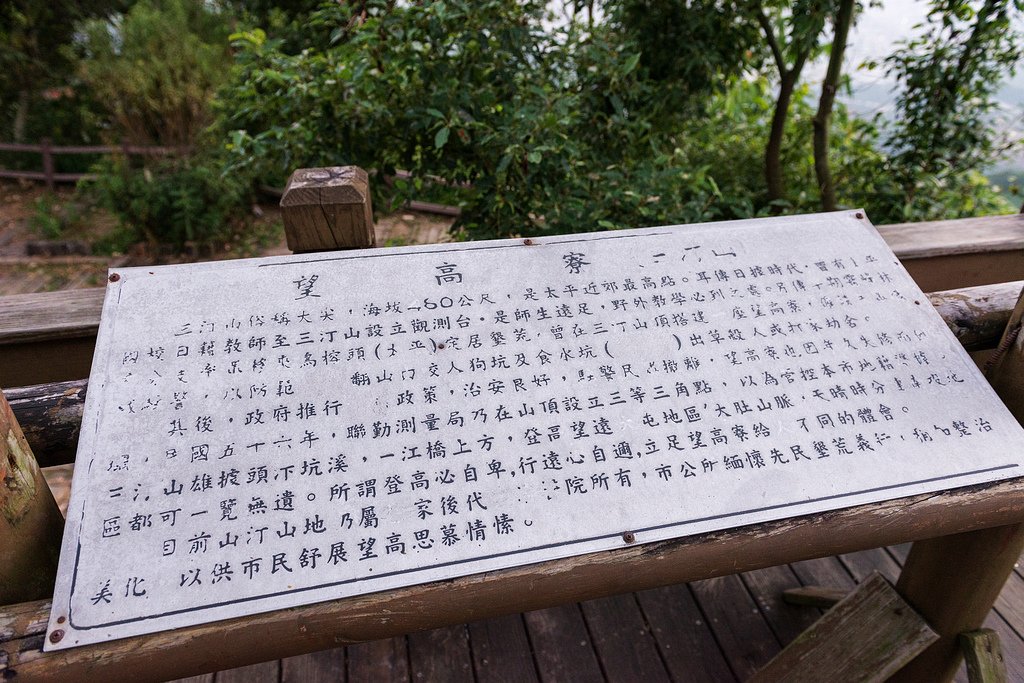 望高寮 三汀山
三汀山俗稱大尖，海拔480公尺，是太平近郊最高點。耳傳日據時代，置有
日籍教師至三汀山設立觀測台。是師生遠足，野外教學必到之處。另傳
烏榕頭(太平)定居墾荒，曾在三汀山頂搭建 座望高寮，
以防範 翻山 交人狗坑及食水坑( )出草殺人或打家劫舍。
其後，政府推行 政策，治安良好，駐警民 撤離，望高寮也因年久失修而
國五十六年，聯勤測量局乃在山頂設立三等三角點，以為管控本市地籍
三汀山雄披頭汴坑溪，一江橋上方，登高望遠 屯地區大肚山脈，天晴時分
區都可一覽無遺。所謂登高必自卑，行遠心自邇，立足望高寮給人不同的體會。
目前山汀山地乃屬 家後代 院所有，市公所緬懷先民墾荒義行，稍加整治
美化 以供市民舒展望高思慕情愫。